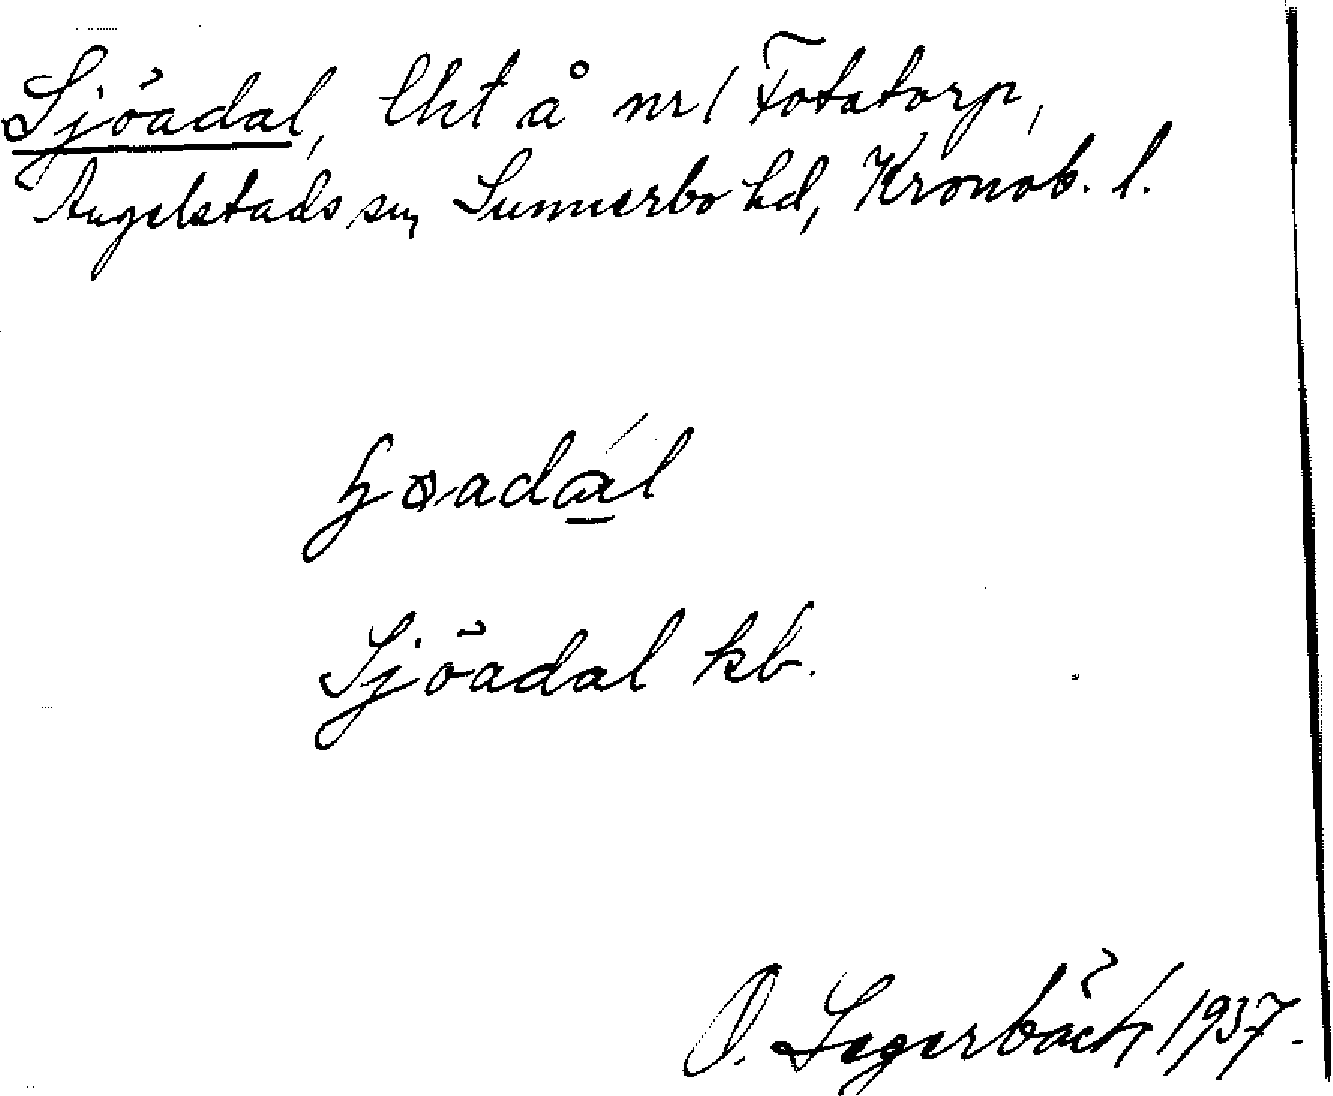 Sjöadal, lht å nr 1 Fotatorp,
Angelstads sn, Sunnerbo hd, Kronob. l.
Sjöadal kb.
O. Segerbäck 1937.